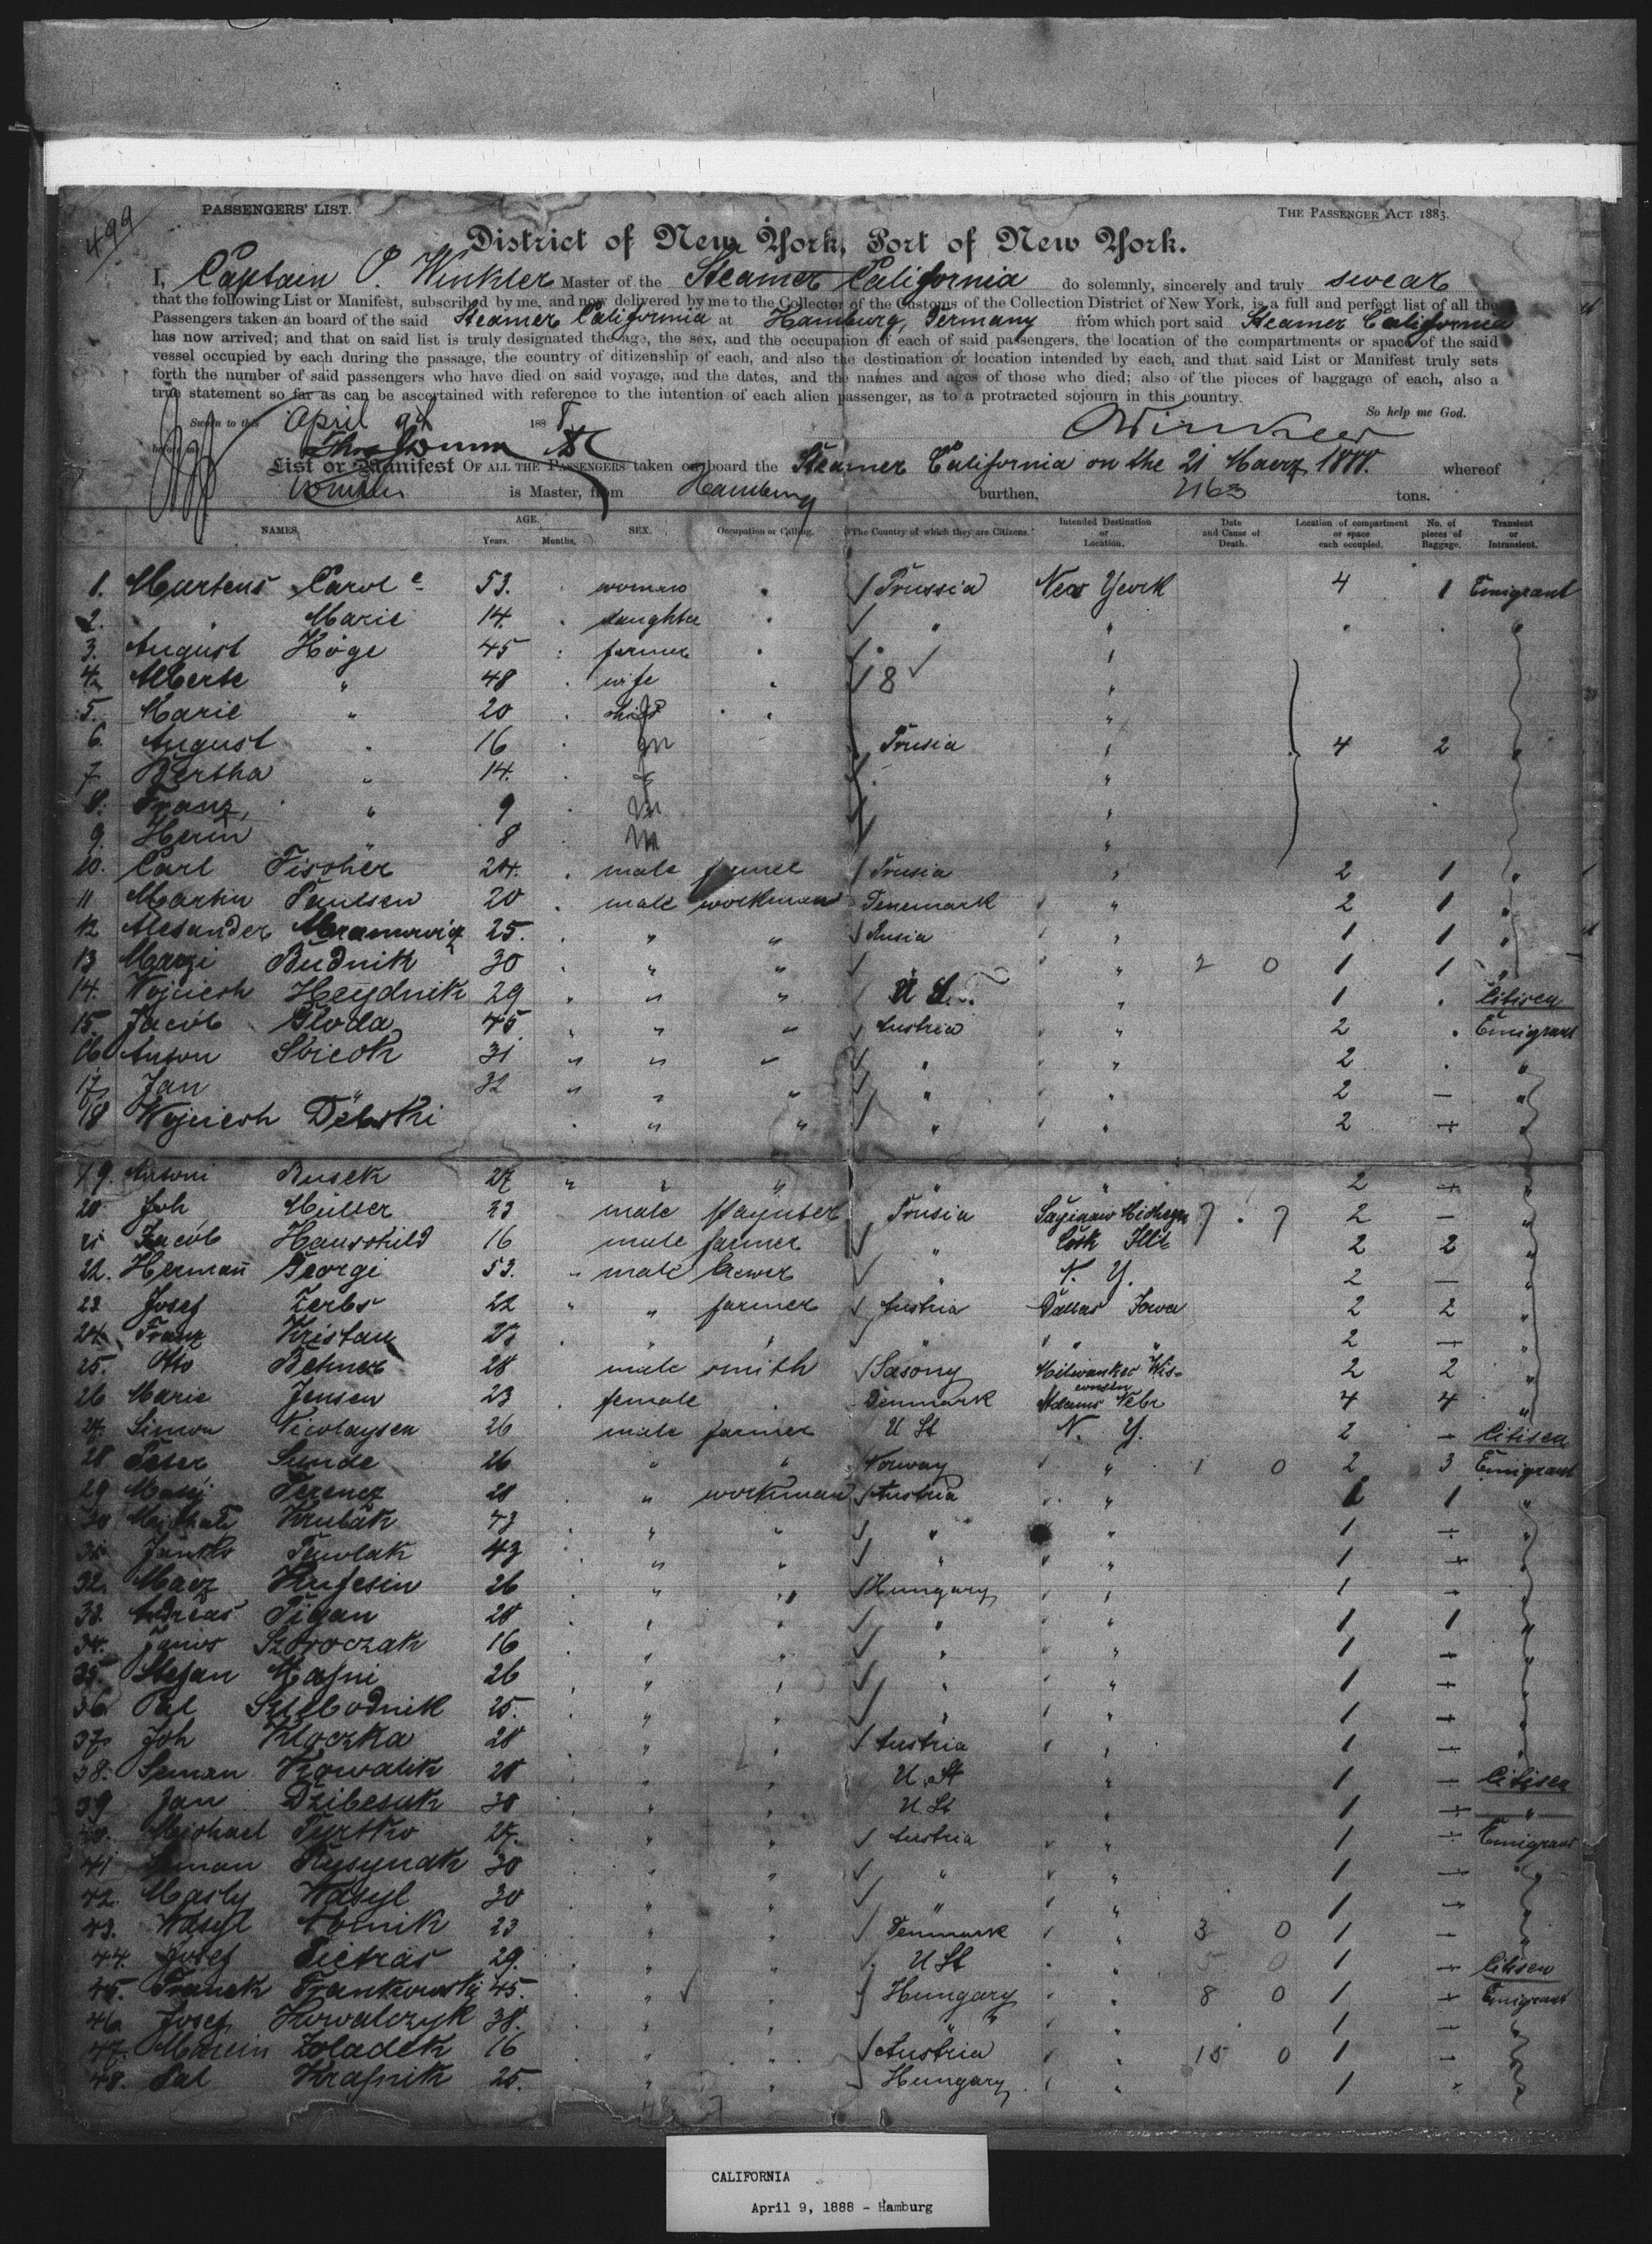 499
PASSENGERS' LIST.
THE PASSENGER ACT 1883.
District of New York, Port of New York.
I, Captain P. Winkler Master of the Steamer California do solemnly, sincerely and truly swear
that the following List or Manifest, subscribed by me, and now delivered by me to the Collector of the Customs of the Collection District of New York, is a full and perfect list of all the
Passengers taken an board of the said Steamer California at Hamburg, Germany from which port said Steamer California
has now arrived; and that on said list is truly designated the age, the sex, and the occupation of each of said passengers, the location of the compartments or space of the said
vessel occupied by each during the passage, the country of citizenship of each, and also the destination or location intended by each, and that said List or Manifest truly sets
forth the number of said passengers who have died on said voyage, and the dates, and the names and ages of those who died; also of the pieces of baggage of each, also a
true statement so far as can be ascertained with reference to the intention of each alien passenger, as to a protracted sojourn in this country.
So help me God.
Sworn to this April 9th 1888
before me
Winkler
List or Manifest OF ALL THE PASSENGERS taken on board the Steamer California on the 21 Maerz 1888. whereof
Winkler is Master, from Hamburg burthen, 2163 tons.
NAMES. AGE. Years. Months. SEX. Occupation or Calling. The Country of which they are Citizens. Intended Destination or Location. Date and Cause of Death. Location of compartment or space each occupied. No. of pieces of Baggage. Transient or Intransient.
1. Martens Carole 53. woman Prussia New York 4 1 Emigrant
2. " Marie 14. daughter " "
3. August Höge 45 farmer "
4. Alberte " 48 wife 8 "
5. Marie " 20 child f "
6. August " 16 m Prusia " 4 2 "
7 Bertha " 14. f "
8. Franz " 9 m "
9. Herm " 8 m "
10. Carl Fischer 24. male farmer Prusia " 2 1 "
11 Martin Paulsen 20 male workman Denemark " 2 1 "
12 Alexander Abramowicz 25. " " Rusia " 1 1 "
13 Budnik 30 " " " 2 0 1 1 "
14. Wojciech Heydnik 29 " " U St. " 1 Citisen
15. Jacób Gloda 45 " " Austria " 2 Emigrant
16 Anton Sbieok 31 " " " " 2 "
17 Jan " 32 " " " " 2 — "
18 Wojciech Debski " " " " 2 "
19. Antoni Busek 27 " " " " 2 "
20 Joh Müller 33 male Prusia Saginaw Michign 2 — "
21 Jacób Hausshild 16 male farmer " Cook Ills 2 2 "
22. Hermañ Georgi 53. male brewer " N. Y. 2 — "
23 Josef Zerbs 22 " farmer Austria Dallas Iowa 2 2 "
24. Franz Kristan " " " " " 2 — "
25. Otto Behner 28 male smith Saxony Milwaukee Wisconsin 2 2 "
26 Marie Jensen 23 female Denmark Adams Nebr 4 4 "
27. Simon Nicolaysen 26 male farmer U St N. Y. 2 — Citisen
28 Peter Sunde 26 " " Norway " 1 0 2 3 Emigrant
29 Ferencz 28 " workman Austria " 1 1 "
30 Michael Hrubák 43 " " " " 1 "
31 Janko Pawlak 43 " " " " 1 "
32. 26 " " Hungary " 1 "
33. Andreas Pigan 28 " " " " 1 1 "
34. Janos Szoroczak 16 " " " " 1 "
35. Stefan 26 " " " " 1 "
36. Pal Szlobodnik 25. " " " " 1 "
37. Joh Kloczka 28 " " Austria " 1 "
38. Seman Kowalik 28 " " U St " 1 Citisen
39 Jan Dzibesuk 30 " " U St 1 "
40. Michael Tyrsko 27. " " Austria " 1 Emigrant
41 Seman Rysynak 30 " " " " 1 "
42. Masly Wasyl 30 " " " " 1 "
43. Wasyl 23 " " Denmark " 3 0 1 "
44. Josef Pietras 29. " " U St " 5 0 1 Citisen
45. Franek Frankowski 45. " Hungary " 8 0 1 Emigrant
46. Josef Kowalczyk 38. " " " 1 "
47. Marcin Zoladek 16 " Austria " 15 0 1 "
48. Pal Krasnik 25. " " Hungary " 1 "
CALIFORNIA
April 9, 1888 - Hamburg